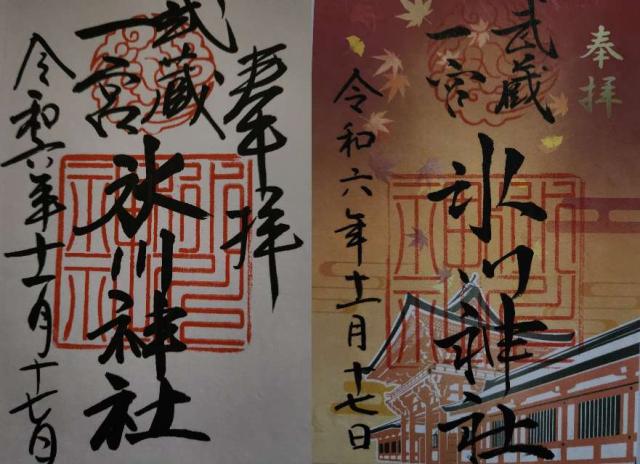 奉拝
武蔵
一宮
氷川神社
令和六年十一月十七日
奉拝
武蔵
一宮
氷川神社
令和六年十一月十七日